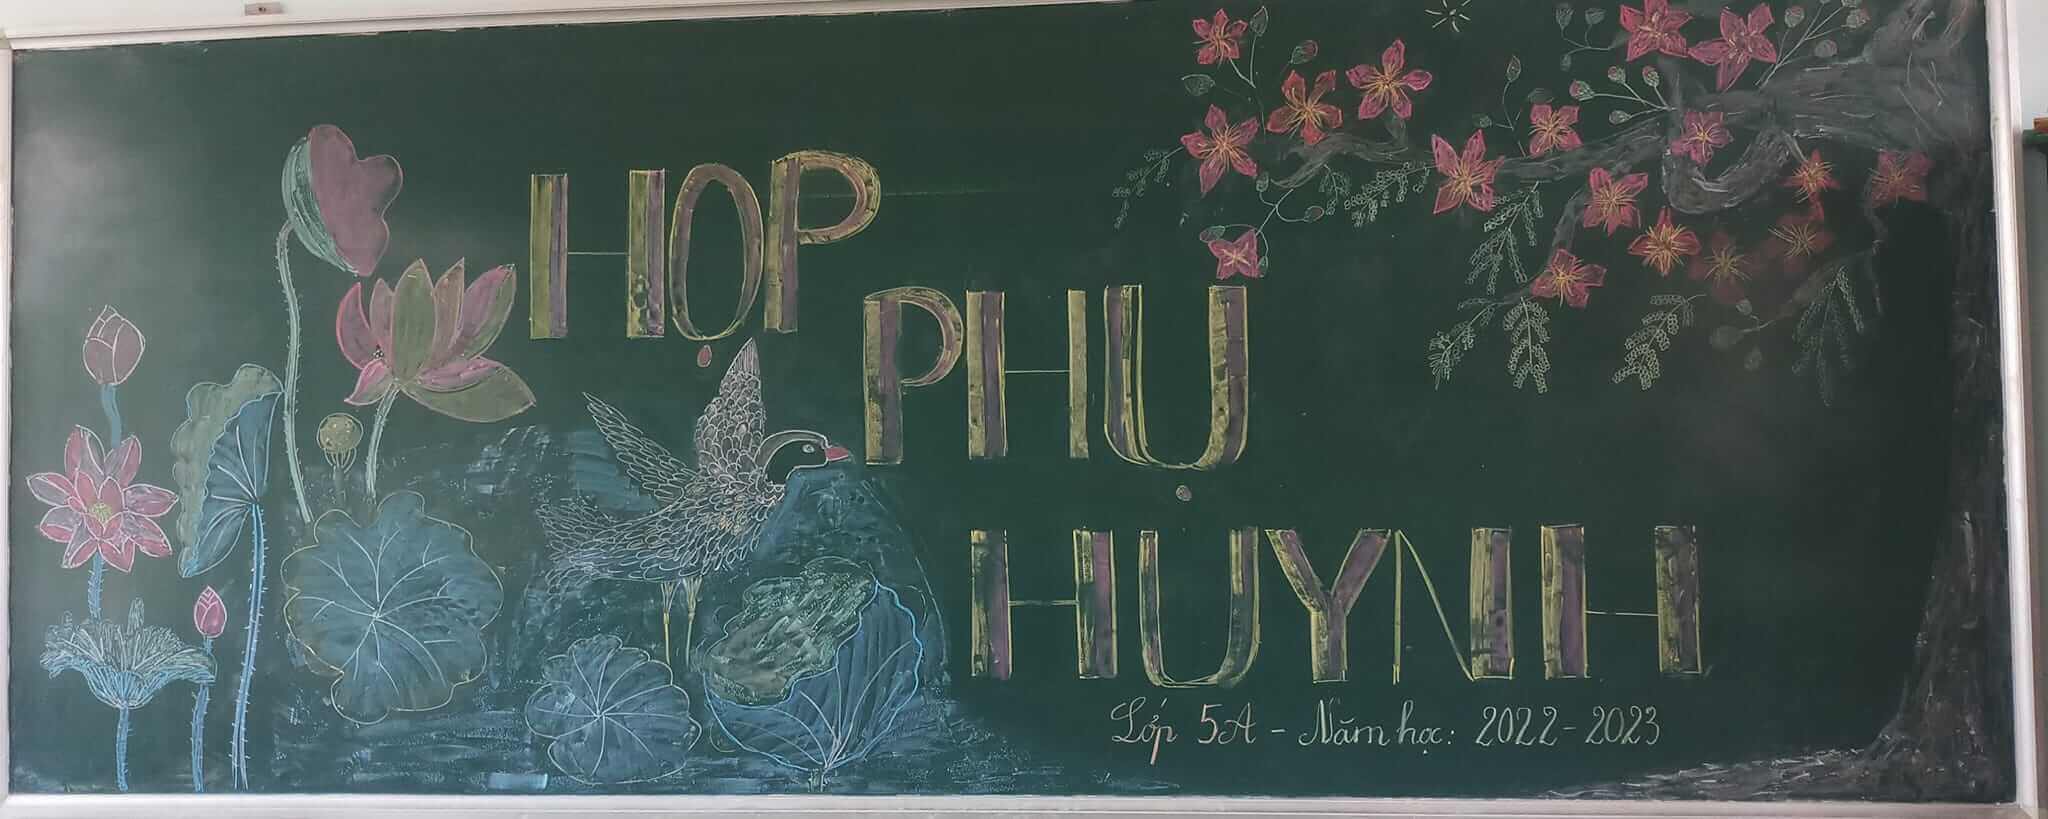 HỌP
PHỤ
HUYNH
Lớp 5A - Năm học: 2022-2023